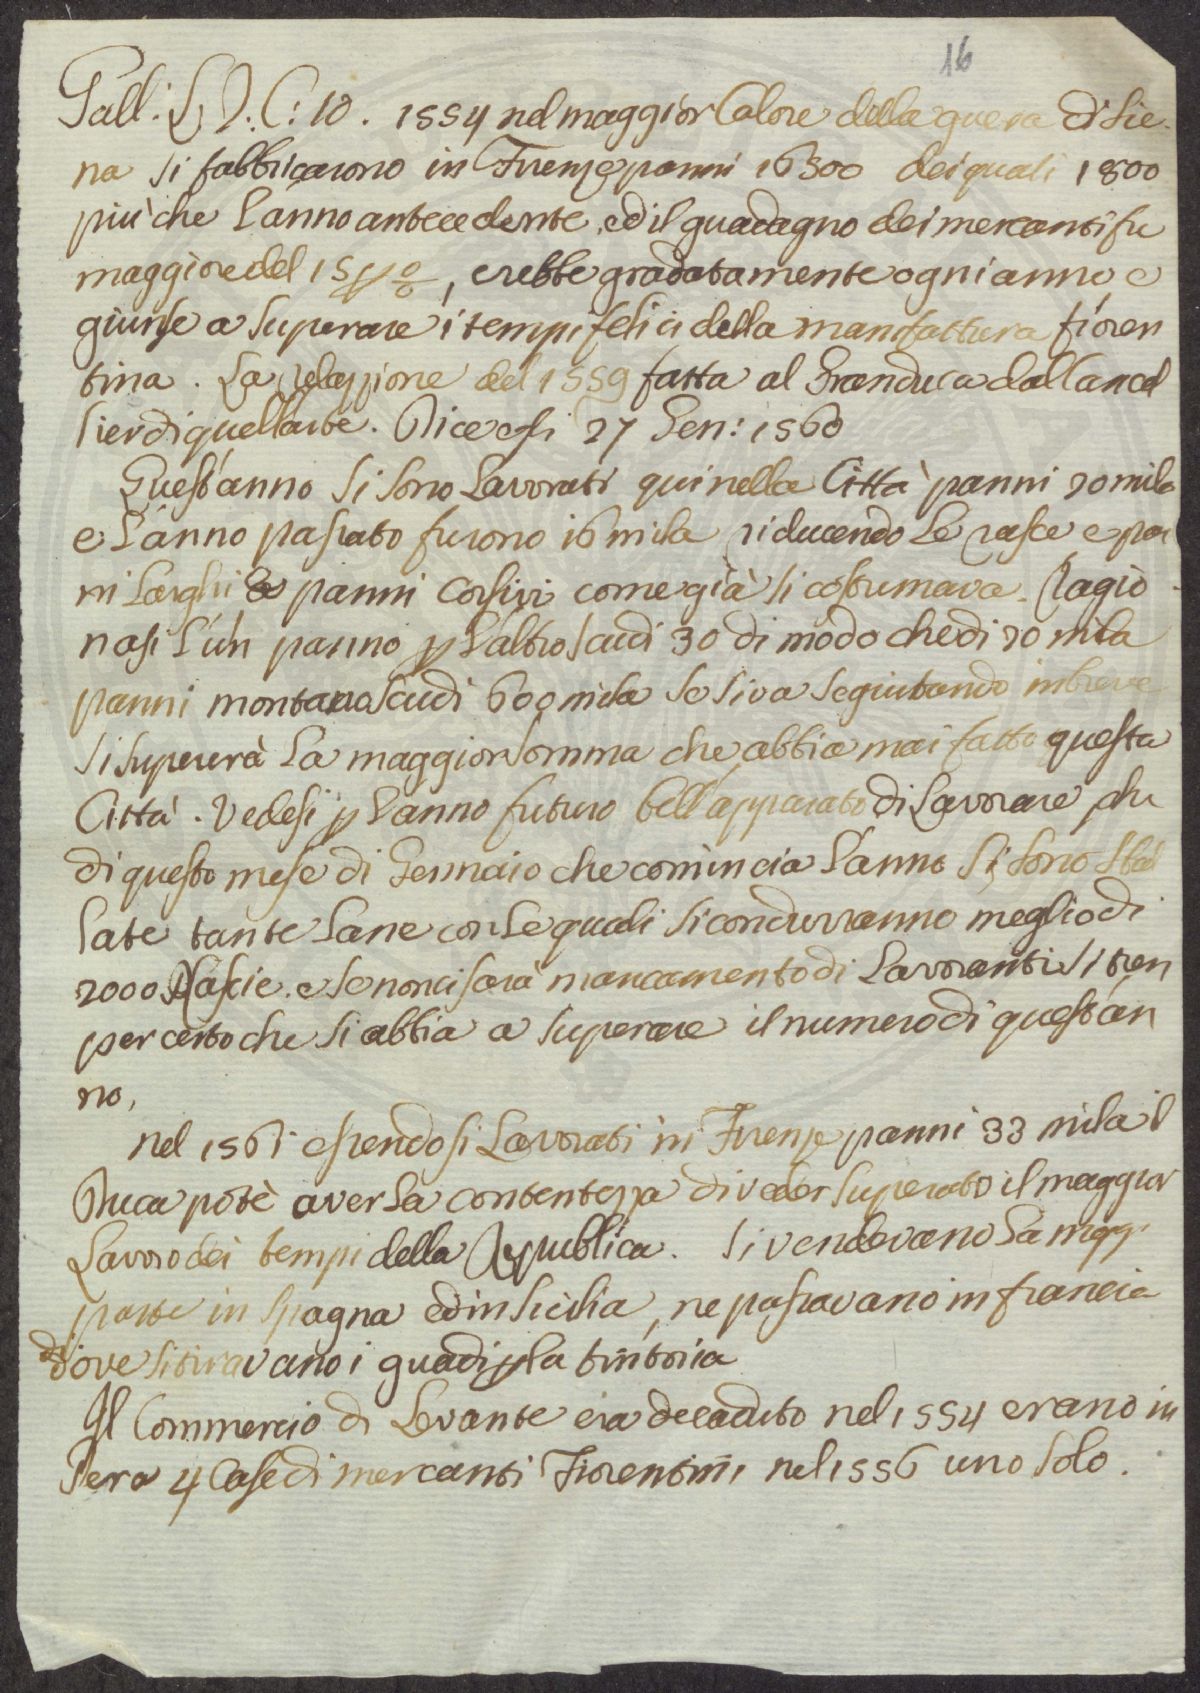 16
Gall: L. I. C: 10. 1554 nel maggior Calore della guera di Sie
na si fabbricarono in Firenze panni 16300 dei quali 1800
più che l'anno antecedente, ed il guadagno dei mercanti fu
maggiore del 15 p %, crebbe gradatamente ogni anno e
giunse a superare i tempi felici della manifattura fioren
tina. La relazzione del 1559 fatta al Granduca dal Cancel
lier di quell'arte. Dice così 27 Gen: 1560
Quest'anno si sono Lavorati qui nella Città panni 20 mila
e l'anno passato furono 16 mila riducendo le rasce e pan
ni Larghi a panni Corsivi come già si costumava. Ragio
nasi l'un panno p l'altro scudi 30 di modo che di 20 mila
panni montano scudi 600 mila se si va seguitando in breve
si supererà la maggior somma che abbia mai fatto questa
Città. Vedesi p l'anno futuro bell'apparato di Lavorare, che
di questo mese di Gennaio che comincia l'anno si sono sbal
late tante Lane con le quali si condurranno meglio di
2000 Rascie, e se non ci sarà mancamento di Lavoranti si tien
per certo che si abbia a superare il numero di quest'an
no,
nel 1561 essendosi Lavorati in Firenze panni 33 mila il
Duca potè aver la contentezza di veder superato il maggior
Lavoro dei tempi della Republica. Si vendevano la magg.
parte in Spagna ed in Sicilia, ne passavano in francia
di dove si tiravano i guadi p la tintoria
Il Commercio di Levante era decaduto nel 1554 erano in
Pera 4 Case di mercanti Fiorentini nel 1556 uno solo.